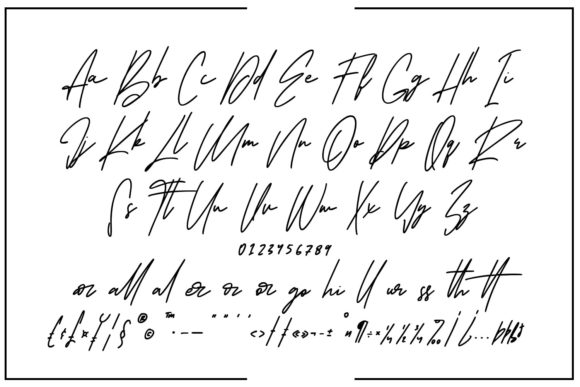 Aa Bb Cc Dd Ee Ff Gg Hh Ii
Jj Kk Ll Mm Nn Oo Pp Qq Rr
Ss Tt Uu Vv Ww Xx Yy Zz
0123456789
or all al er or or go hi ll ur ss th tt
® ™ " " ' ' °
© · – — < > † ‡ « » ¬ - ± ¶ ÷ × ¼ ½ ¾ ‰ ¡ ¿ ...